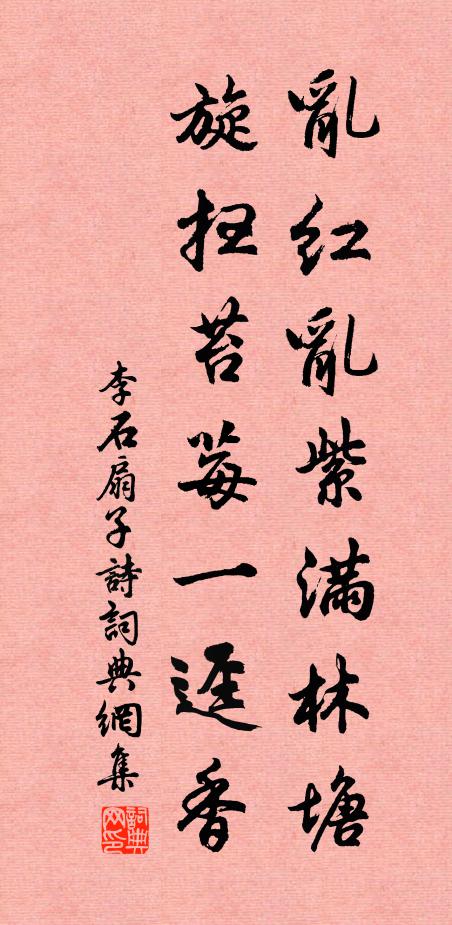 亂紅亂紫滿林塘
旋扫苔莓一逕香
李石扇子詩詞典網集
詞典网印